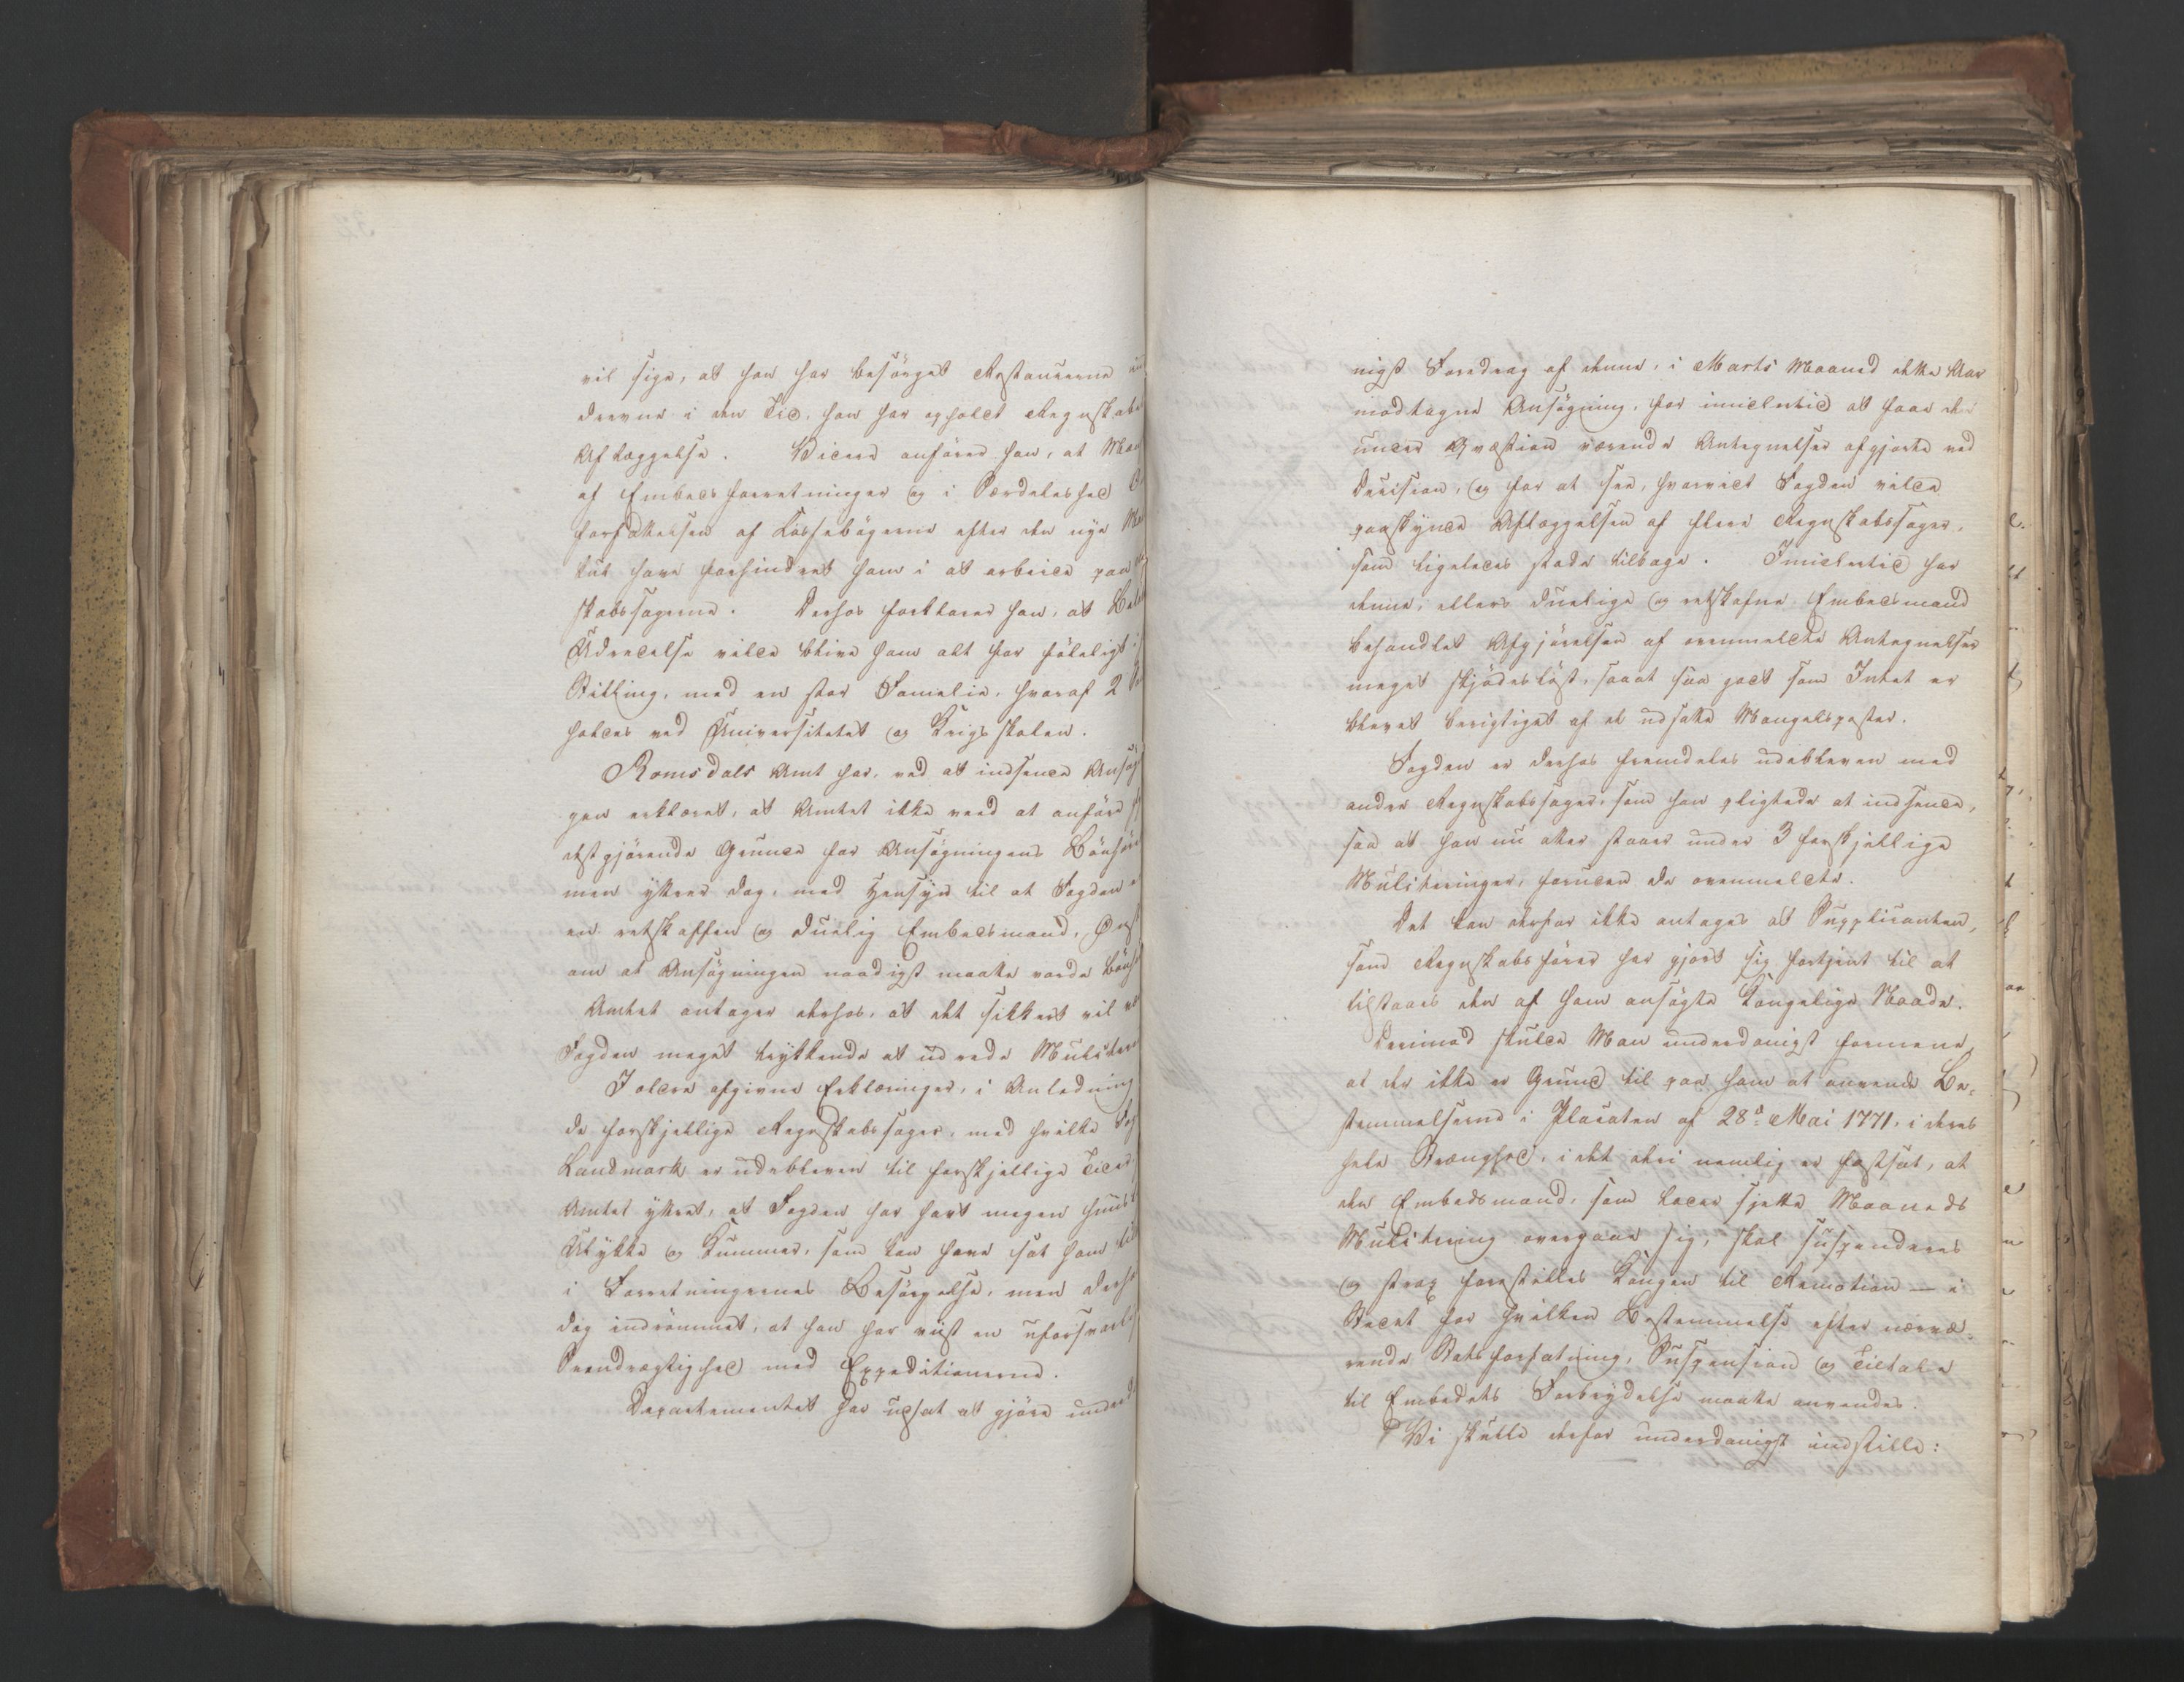 vil sige, at han har besörget Restancerne
drevne i den Tid, han har opholdt Regnskabe
Aflæggelse. Videre anförer han, at
af Embedsforretninger og i Særdeleshed
forfattelsen af Kassebögerne efter den nye
have forhindret ham i at arbeide paa
skabssagerne. Derhos forklarer han, at
Udredelse vilde blive ham alt for föleligt i
Stilling, med en stor Famelie, hvoraf 2
holdes ved Universitetet og Krigsskolen.
Romsdals Amt har, ved at indsende
gen erklæret, at Amtet ikke veed at anföre
destgjörende Grunde for Ansögningens Bönhöre
men yttrer dog, med Hensyn til at Fogden
en retskaffen og duelig Embedsmand, Önsk
om at Ansögningen naadigst maatte vorde Bönh
Amtet antager derhos, at det sikkert vil
Fogden meget trykkende at udrede Mulcter
I ældre afgivne Erklæringer, i Anledning
de forskjellige Regnskabssager, med hvilke
Landmark er udebleven til forskjellige Tider
Amtet yttret, at Fogden har havt megen huus
Ulykke og Kummer, som kan have sat ham
i Forretningernes Besörgelse, men derh
dog indrömmet, at han har viist en uforsvarlig
Seendrægtighed med Expeditionerne.
Departementet har udsat at gjöre underd
nigst Foredrag af denne, i Marts Maaned dette Aar
modtagne Ansögning, for imidlertid at faae de
under Qvæstion værende Antegnelser afgjorte ved
Decision, og for at see, hvorvidt Fogden vilde
paaskynde Aflæggelsen af flere Regnskabssager,
som ligeledes stode tilbage. Imidlertid har
denne, ellers duelige og retskafne Embedsmand
behandlet Afgjörelsen af ovenmeldte Antegnelser
meget skjödeslöst, saaat saa godt som Intet er
blevet berigtiget af de udsatte Mangelsposter.
Fogden er derhos fremdeles udebleven med
andre Regnskabssager, som han pligtede at indsende,
saa at han nu atter staaer under 3 forskjellige
Mulcteringer, foruden de ovenmeldte.
Det kan derfor ikke antages at Supplicanten,
som Regnskabsförer har gjort sig fortjent til at
tilstaaes den af ham ansögte Kongelige Naade.
Derimod skulde Man underdanigst formene,
at der ikke er Grund til paa ham at anvende Be-
stemmelserne i Placaten af 28d. Mai 1771, i deres
hele Strenghed, i det deri nemlig er fastsat, at
den Embedsmand, som lader sjette Maaneds
Mulctering overgaae sig, skal suspenderes
og strax forestilles Kongen til Remotion — i
Stedet for hvilken Bestemmelse efter nærvæ-
rende Statsforfatning, Suspension og Tiltale
til Embedets Forbrydelse maatte anvendes.
Vi skulle derfor underdanigst indstille: